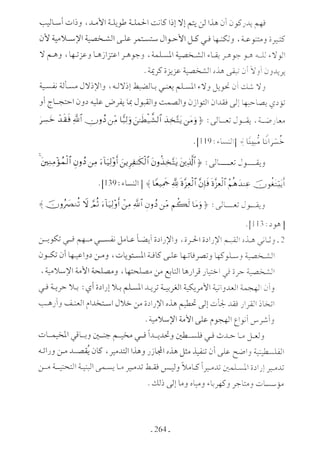 فهم يدركون أن هذا لن يتم إلا إذا كانت الحملة طويلة الأمد، وذات أساليب
كثيرة ومتنوعة، ولكنها في كل الأحوال ستستمر على الشخصية الإسلامية لأن
الولاء لله هو جوهر بقاء الشخصية المسلمة، وجوهر اعتزازها وعزتها، وهم لا
يريدون أولاً أن تبقى هذه الشخصية عزيزة كريمة.
ولا شك أن تحويل ولاء المسلم يعني بالضبط إذلاله، والإذلال مسألة نفسية
تؤدي بصاحبها إلى فقدان التوازن والصمت والقبول بما يفرض عليه دون احتجاج أو
معارضة، يقول تعالى: ﴿ وَمَن يَتَّخِذِ ٱلشَّيْطَٰنَ وَلِيًّا مِّن دُونِ ٱللَّهِ فَقَدْ خَسِرَ
خُسْرَانًا مُّبِينًا ﴾ [النساء: 119].
ويقول تعالى: ﴿ ٱلَّذِينَ يَتَّخِذُونَ ٱلْكَٰفِرِينَ أَوْلِيَآءَ مِن دُونِ ٱلْمُؤْمِنِينَ
أَيَبْتَغُونَ عِندَهُمُ ٱلْعِزَّةَ فَإِنَّ ٱلْعِزَّةَ لِلَّهِ جَمِيعًا ﴾ [النساء: 139].
ويقول تعالى: ﴿ وَمَا لَكُم مِّن دُونِ ٱللَّهِ مِنْ أَوْلِيَآءَ ثُمَّ لَا تُنصَرُونَ ﴾
[هود: 113].
2. وثاني هذه القيم الإرادة الحرة، والإرادة أيضاً عامل نفسي مهم في تكوين
الشخصية وسلوكها وتصرفاتها على كافة المستويات، ومن دواعيها أن تكون
الشخصية حرة في اختيار قرارها النابع من مصلحتها، ومصلحة الأمة الإسلامية.
وأن الهجمة العدوانية الأمريكية الغربية تريد المسلم بلا إرادة أي: بلا حرية في
اتخاذ القرار فقد لجأت إلى تحطيم هذه الإرادة من خلال استخدام العنف وأرهب
وأشرس أنواع الهجوم على الأمة الإسلامية.
ولعل ما حدث في فلسطين وتحديداً في مخيم جنين وباقي المخيمات
الفلسطينية واضح على أن تنفيذ مثل هذه المجازر وهذا التدمير، كان يُقصد من ورائه
تدمير إرادة المسلمين تدميراً كاملاً وليس فقط تدمير ما يسمى البنية التحتية من
مؤسسات ومتاجر وكهرباء ومياه وما إلى ذلك.
- 264 -